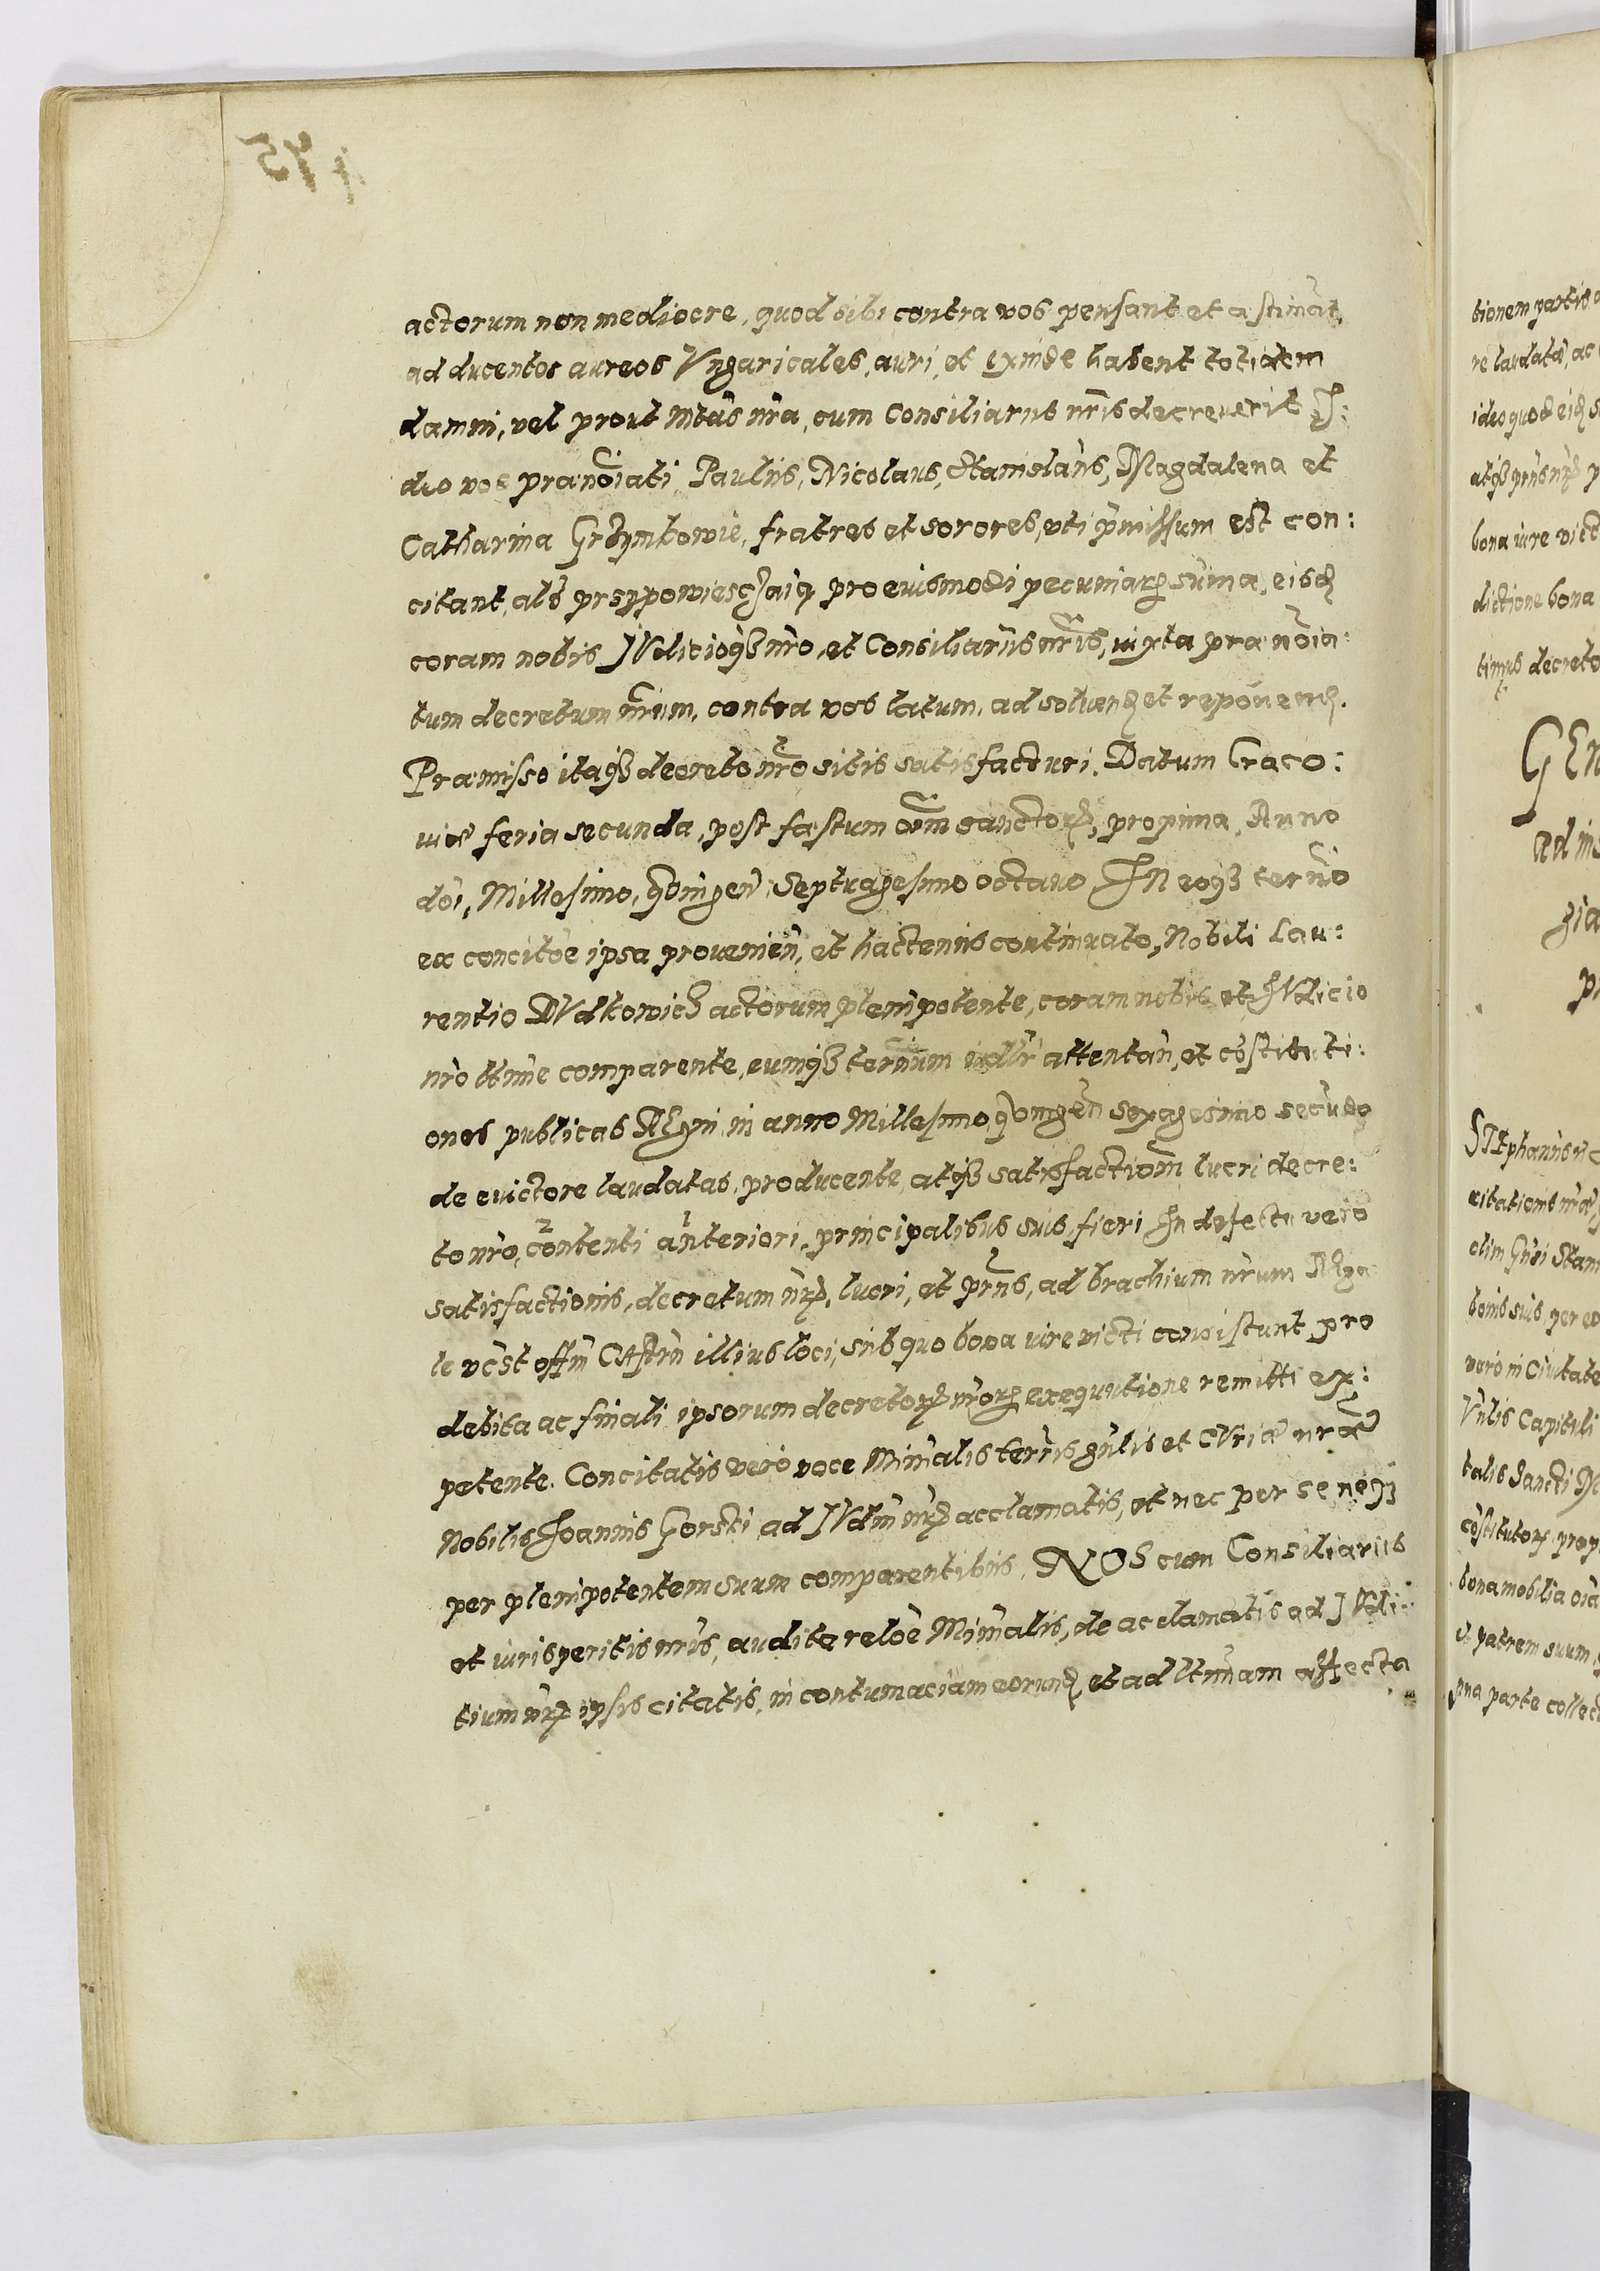 actorum non mediocre, quod sibi contra vos pensant et æstimãt,
ad ducentos aureos Vngaricales, auri, et exinde habent totidem
damni, vel prout Mtas nr̃a, cum Consiliariis nr̃is decreuerit I:
deo vos prænõiati Paulus, Nicolaus, Stanislaus, Magdalena et
Catharina Grzymkowie, fratres et sorores, uti p̃missum est con:
citant, als prz̃ypowiesczaią, pro eiusmodi pecuniarꝝ sum̃a, eisdꝫ
coram nobis IVdicioqꝫ nr̃o, et Consiliariis nr̃is, iuxta prænõia:
tum decretum nr̃um, contra vos latum, ad soluendꝫ et reponendꝫ.
Præmisso itaqꝫ decreto nr̃o sitis satisfacturi. Datum Craco:
uiæ feria secunda, post fæstum om̃ sanctorꝝ, proxima, Anno
dõi, Millesimo, qũingeñ, Septuagesimo octauo IN eoqꝫ term̃o
ex concitõe ipsa prouenieñ, et hactenus continuato, Nobili Lau:
rentio DVdkowicz actorum plenipotente, coram nobis et IVdicio
nr̃o ltt̃ime comparente, eumqꝫ term̃um iudlr̃ attentañ, et cõstituti:
ones publicas Regni, in anno Millesimo qũingeñ sexagesimo secũdo
de euictore laudatas, producente, atqꝫ satisfactionm̃ lucri decre:
to nr̃o, contenti anteriori, principalibus suis fieri In defectu vero
satisfactionis, decretum nr̃ꝝ, lucri, et pr̃ns, ad brachium nr̃um Rega
le vẽst offm̃ CAstrñ illius loci, sub quo bona iure victi consistunt, pro
debita ac finali ipsorum decretorꝝ nr̃orꝝ exequutione remitti ex:
petente. Concitatis vero voce Minr̃alis terr̃is gñlis et CVriæ nr̃æ
Nobilis Ioannis Gorski ad IVdm̃ nr̃ꝝ acclamatis, et nec per se neqꝫ
per plenipotentem suum comparentibus, NOS cum Consiliariis
et iurisperitis nr̃is, audita relõe Minr̃alis, de acclamatis ad IVdi:
tium nr̃ꝝ ipsis citatis, in contumaciam eorundꝫ et ad ltt̃imam affecta
tionem partis
re laudatæ, ac
ideo quod eisdꝫ
bona iure vict
dictione bona
timus decreto
GEn
ad ins
gia
STEphanus
citationis
olim Gñsi Stan
bonis suis, per
vero in Ciuitate
Vñlis Capituli
talis Sancti
cõstitutorꝝ
bona mobilia oĩa
et patrem suum,
vna parte collect